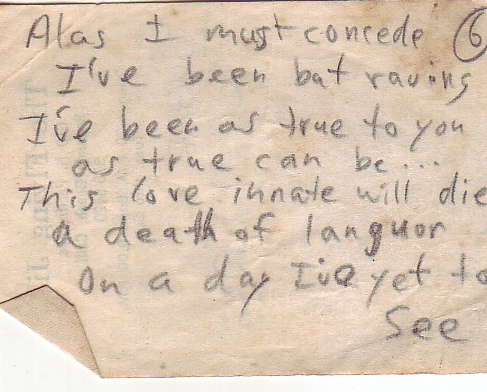 Alas I must concede 6
I've been but raving
I've been as true to you
as true can be...
This love innate will die
a death of languor
On a day I've yet to
See